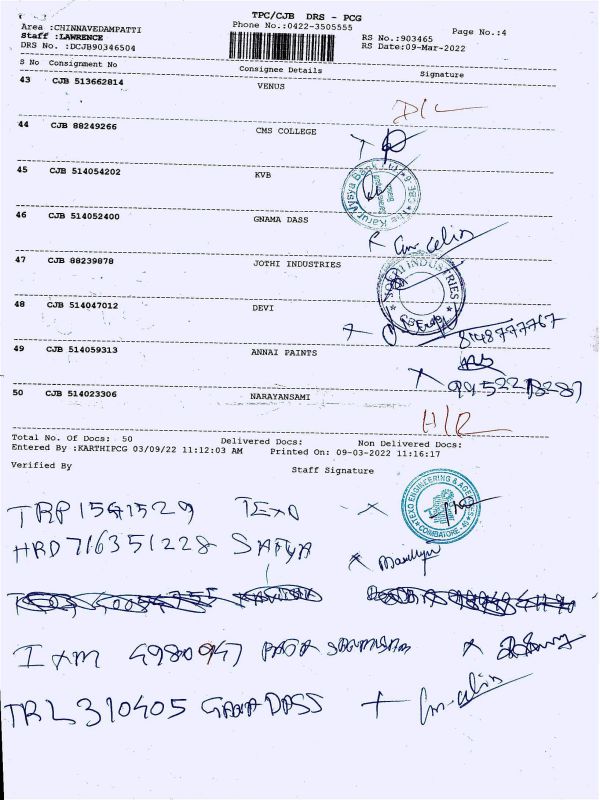 TPC/CJB DRS - PCG
Area :CHINNAVEDAMPATTI
Phone No.:0422-3505555
Page No.:4
Staff :LAWRENCE
RS No.:903465
DRS No. :DCJB90346504
RS Date:09-Mar-2022
S No Consignment No Consignee Details Signature
43 CJB 513662814 VENUS
D/L
44 CJB 88249266 CMS COLLEGE
45 CJB 514054202 KVB
46 CJB 514052400 GNAMA DASS
47 CJB 88239878 JOTHI INDUSTRIES
JOTHI INDUSTRIES
48 CJB 514047012 DEVI
8148777767
49 CJB 514059313 ANNAI PAINTS
50 CJB 514023306 NARAYANSAMI
Total No. Of Docs: 50 Delivered Docs: Non Delivered Docs:
Entered By :KARTHIPCG 03/09/22 11:12:03 AM Printed On: 09-03-2022 11:16:17
Verified By Staff Signature
TEXO ENGINEERING & AGENCIES
COIMBATORE
HRD716351228 SATYA
TRL310405 GANADASS